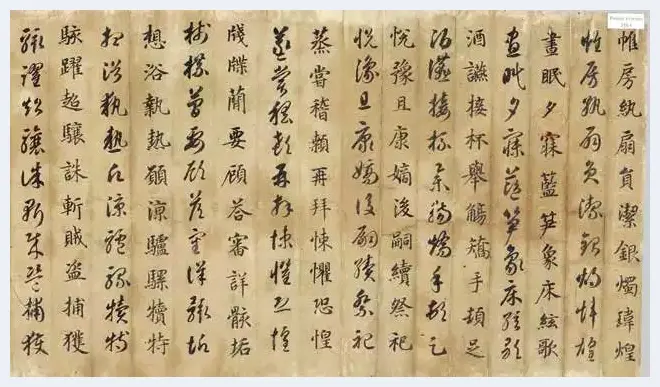 帷房紈扇員潔銀燭瑋煌
帷房紈扇員潔銀燭煒煌
晝眠夕寐藍笋象床絃歌
晝眠夕寐藍笋象床絃歌
酒讌接杯舉觴矯手頓足
酒讌接杯舉觴矯手頓足
悅豫且康嫡後嗣續祭祀
悅豫且康嫡後嗣續祭祀
蒸嘗稽顙再拜悚懼恐惶
蒸嘗稽顙再拜悚懼恐惶
牋牒蕳要顧荅審詳骸垢
牋牒蕳要顧荅審詳骸垢
想浴執熱願涼驢騾犢特
想浴執熱願涼驢騾犢特
駭躍超驤誅斬賊盗捕獲
駭躍超驤誅斬賊盗捕獲